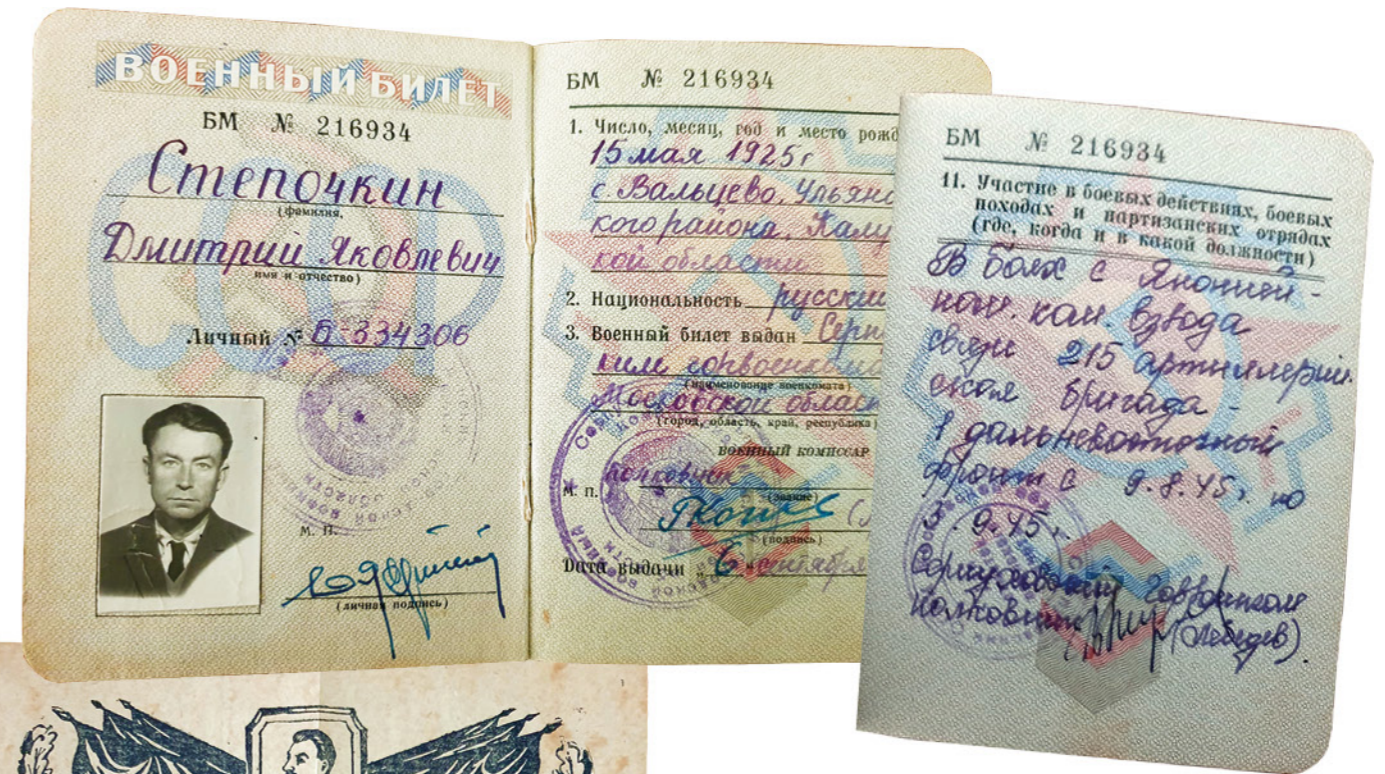 ВОЕННЫЙ БИЛЕТ
БМ № 216934
Степочкин
(фамилия,
Дмитрий Яковлевич
имя и отчество)
Личный № Б-334306
М. П.
(личная подпись)
БМ № 216934
1. Число, месяц, год и место рожд
15 мая 1925г
с. Вальцево, Ульянс
кого района, Калу
кой области
2. Национальность русский
3. Военный билет выдан Серп
ким горвоенкома
(наименование военкомата)
Московской област
(город, область, край, республика)
ВОЕННЫЙ КОМИССАР
полковник
М. П. (звание)
(подпись)
Дата выдачи 6 сентября
БМ № 216934
11. Участие в боевых действиях, боевых
походах и партизанских отрядах
(где, когда и в какой должности)
В боях с Японией -
пом. ком. взвода
связи 215 артиллерий
ская бригада -
1 дальневосточный
фронт с 9.8.45г. по
3.9.45г.
Серпуховский
полковник (Лебедев).